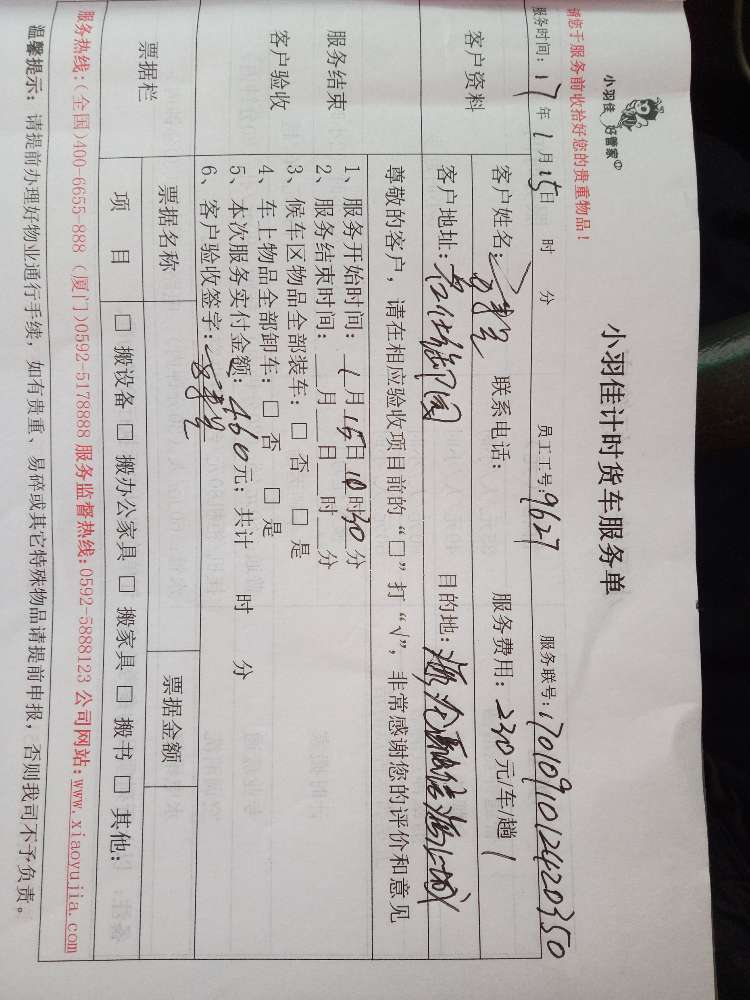 小羽佳 好管家
请您于服务前收拾好您的贵重物品！
小羽佳计时货车服务单
服务时间：17年1月15日 时 分 员工工号：9627 服务联号：1701091012420350
客户资料
客户姓名： 联系电话： 服务费用：230元/车/趟
客户地址： 目的地：
服务结束
客户验收
尊敬的客户，请在相应验收项目前的“□”打“√”，非常感谢您的评价和意见
1、服务开始时间：1月15日10时30分
2、服务结束时间：___月___日___时___分
3、候车区物品全部装车：□ 否 □ 是
4、车上物品全部卸车：□ 否 □ 是
5、本次服务实付金额：460元；共计 时 分
6、客户验收签字：
票据栏 票据名称 票据金额
项 目 □ 搬设备 □ 搬办公家具 □ 搬家具 □ 搬书 □ 其他：
服务热线：(全国)400-6655-888 (厦门)0592-5178888 服务监督热线：0592-5888123 公司网站：www.xiaoyujia.com
温馨提示：请提前办理好物业通行手续，如有贵重、易碎或其它特殊物品请提前申报，否则我司不予负责。